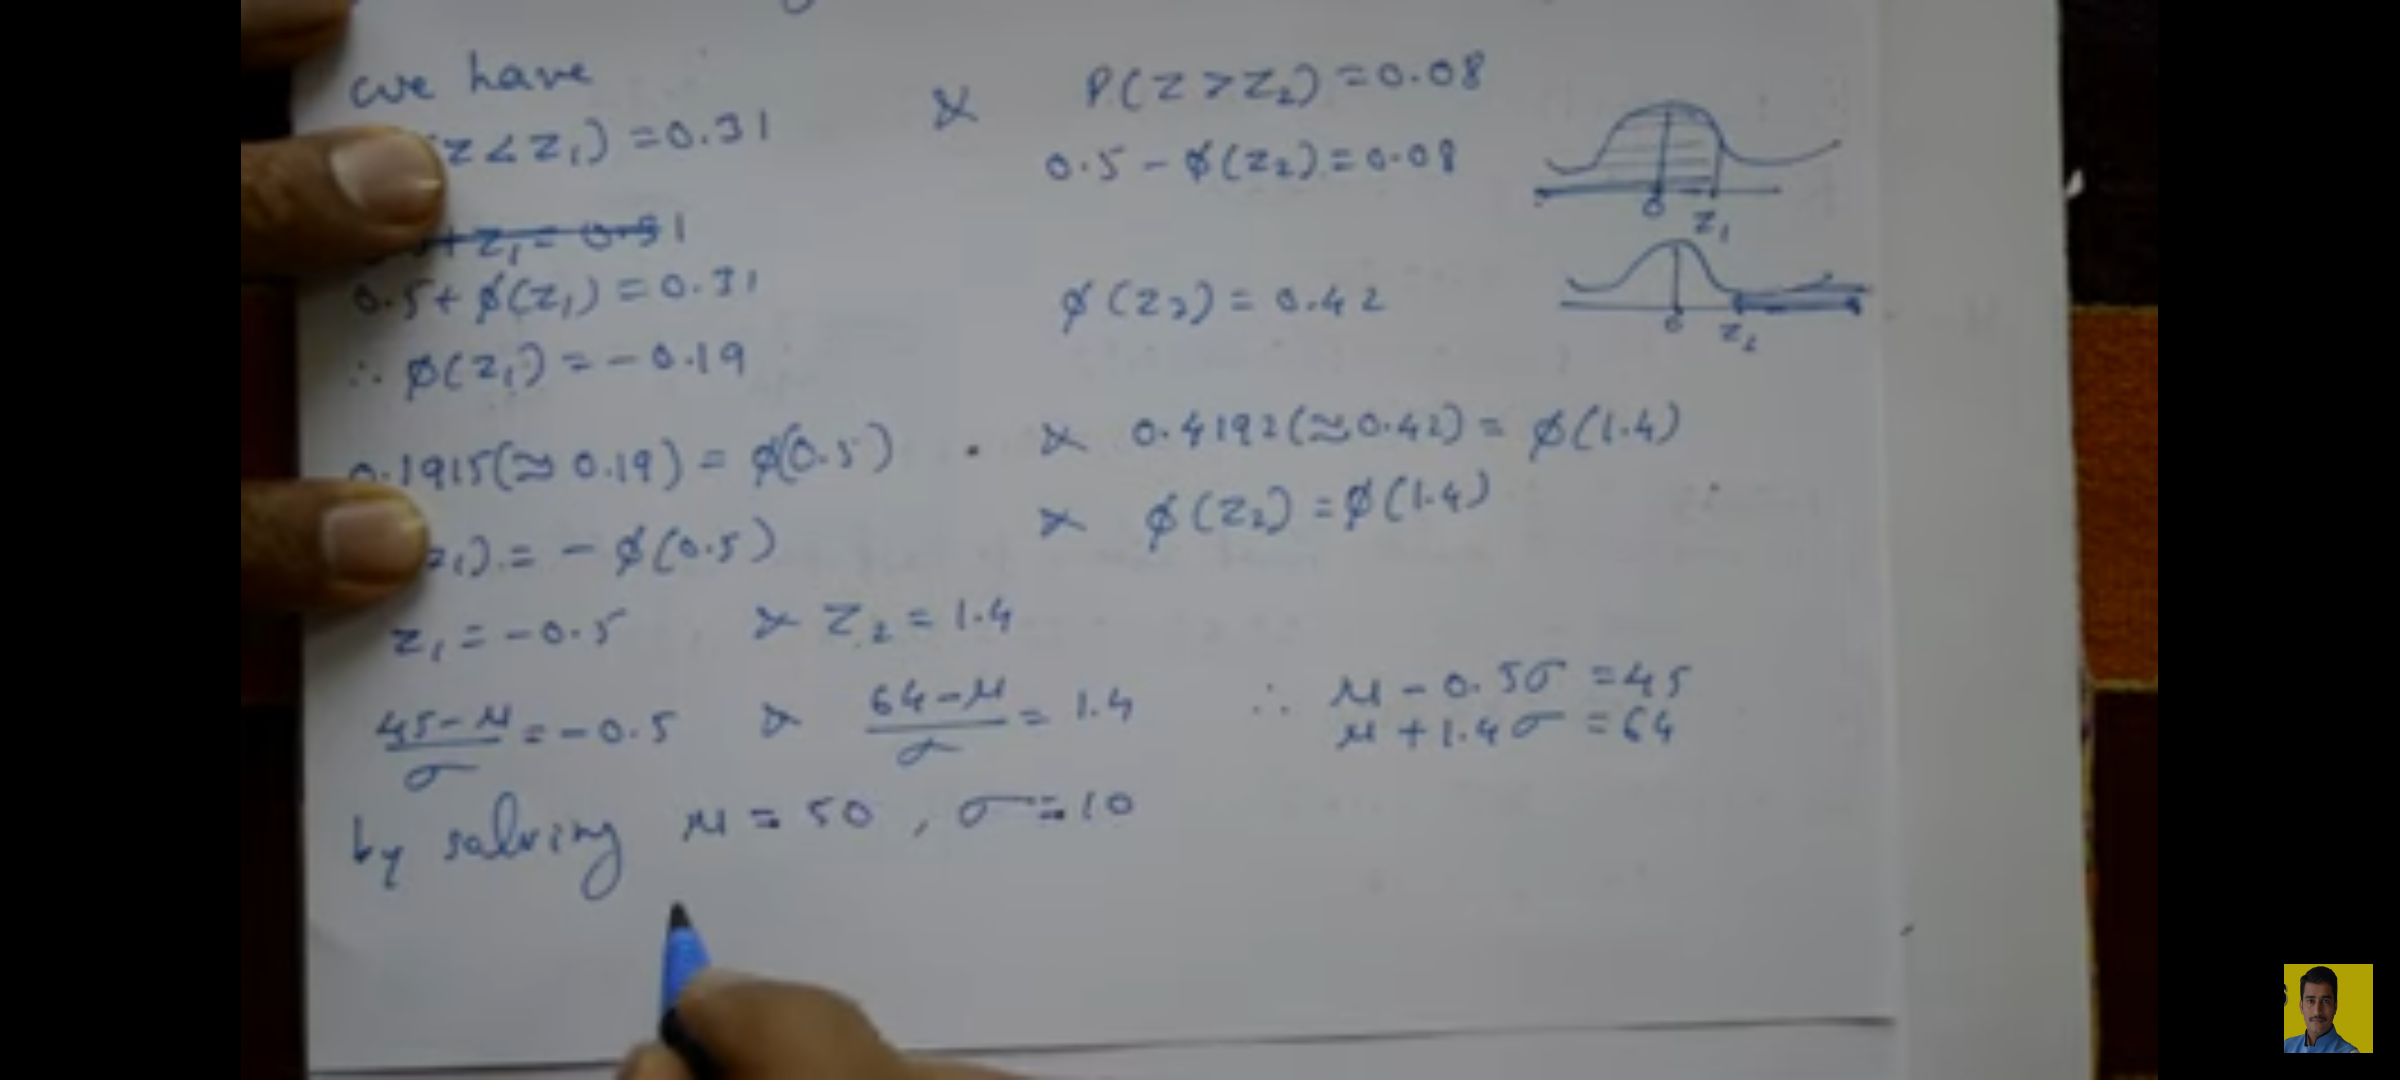 we have
z < z₁) = 0.31 & P(z > z₂) = 0.08
0.5 - φ(z₂) = 0.08
+ z₁ = 0.31
0.5 + φ(z₁) = 0.31 φ(z₂) = 0.42
∴ φ(z₁) = - 0.19
0.1915(≈ 0.19) = φ(0.5) & 0.4192(≈0.42) = φ(1.4)
z₁) = - φ(0.5) & φ(z₂) = φ(1.4)
z₁ = -0.5 & z₂ = 1.4
45-μ/σ = -0.5 & 64-μ/σ = 1.4 ∴ μ - 0.5σ = 45
μ + 1.4σ = 64
by solving μ = 50, σ = 10
0 z₁
0 z₂